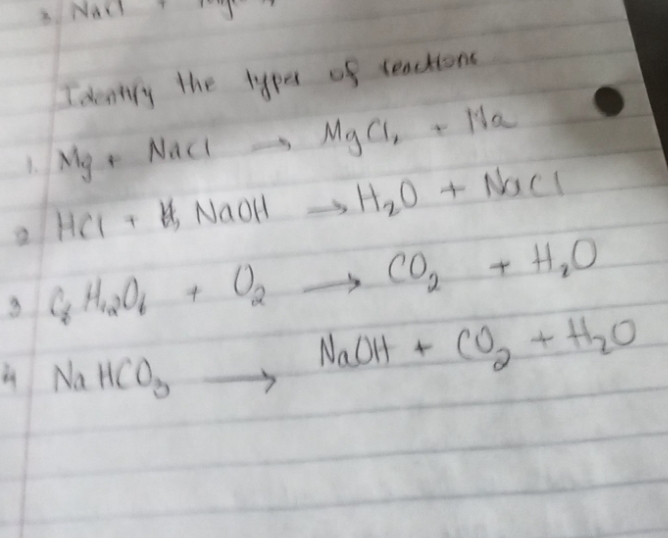 3. NaCl +
Identify the types of reactions
1. Mg + NaCl → MgCl₂ + Na
2 HCl + NaOH → H₂O + NaCl
3 C₆H₁₂O₆ + O₂ → CO₂ + H₂O
4 NaHCO₃ → NaOH + CO₂ + H₂O